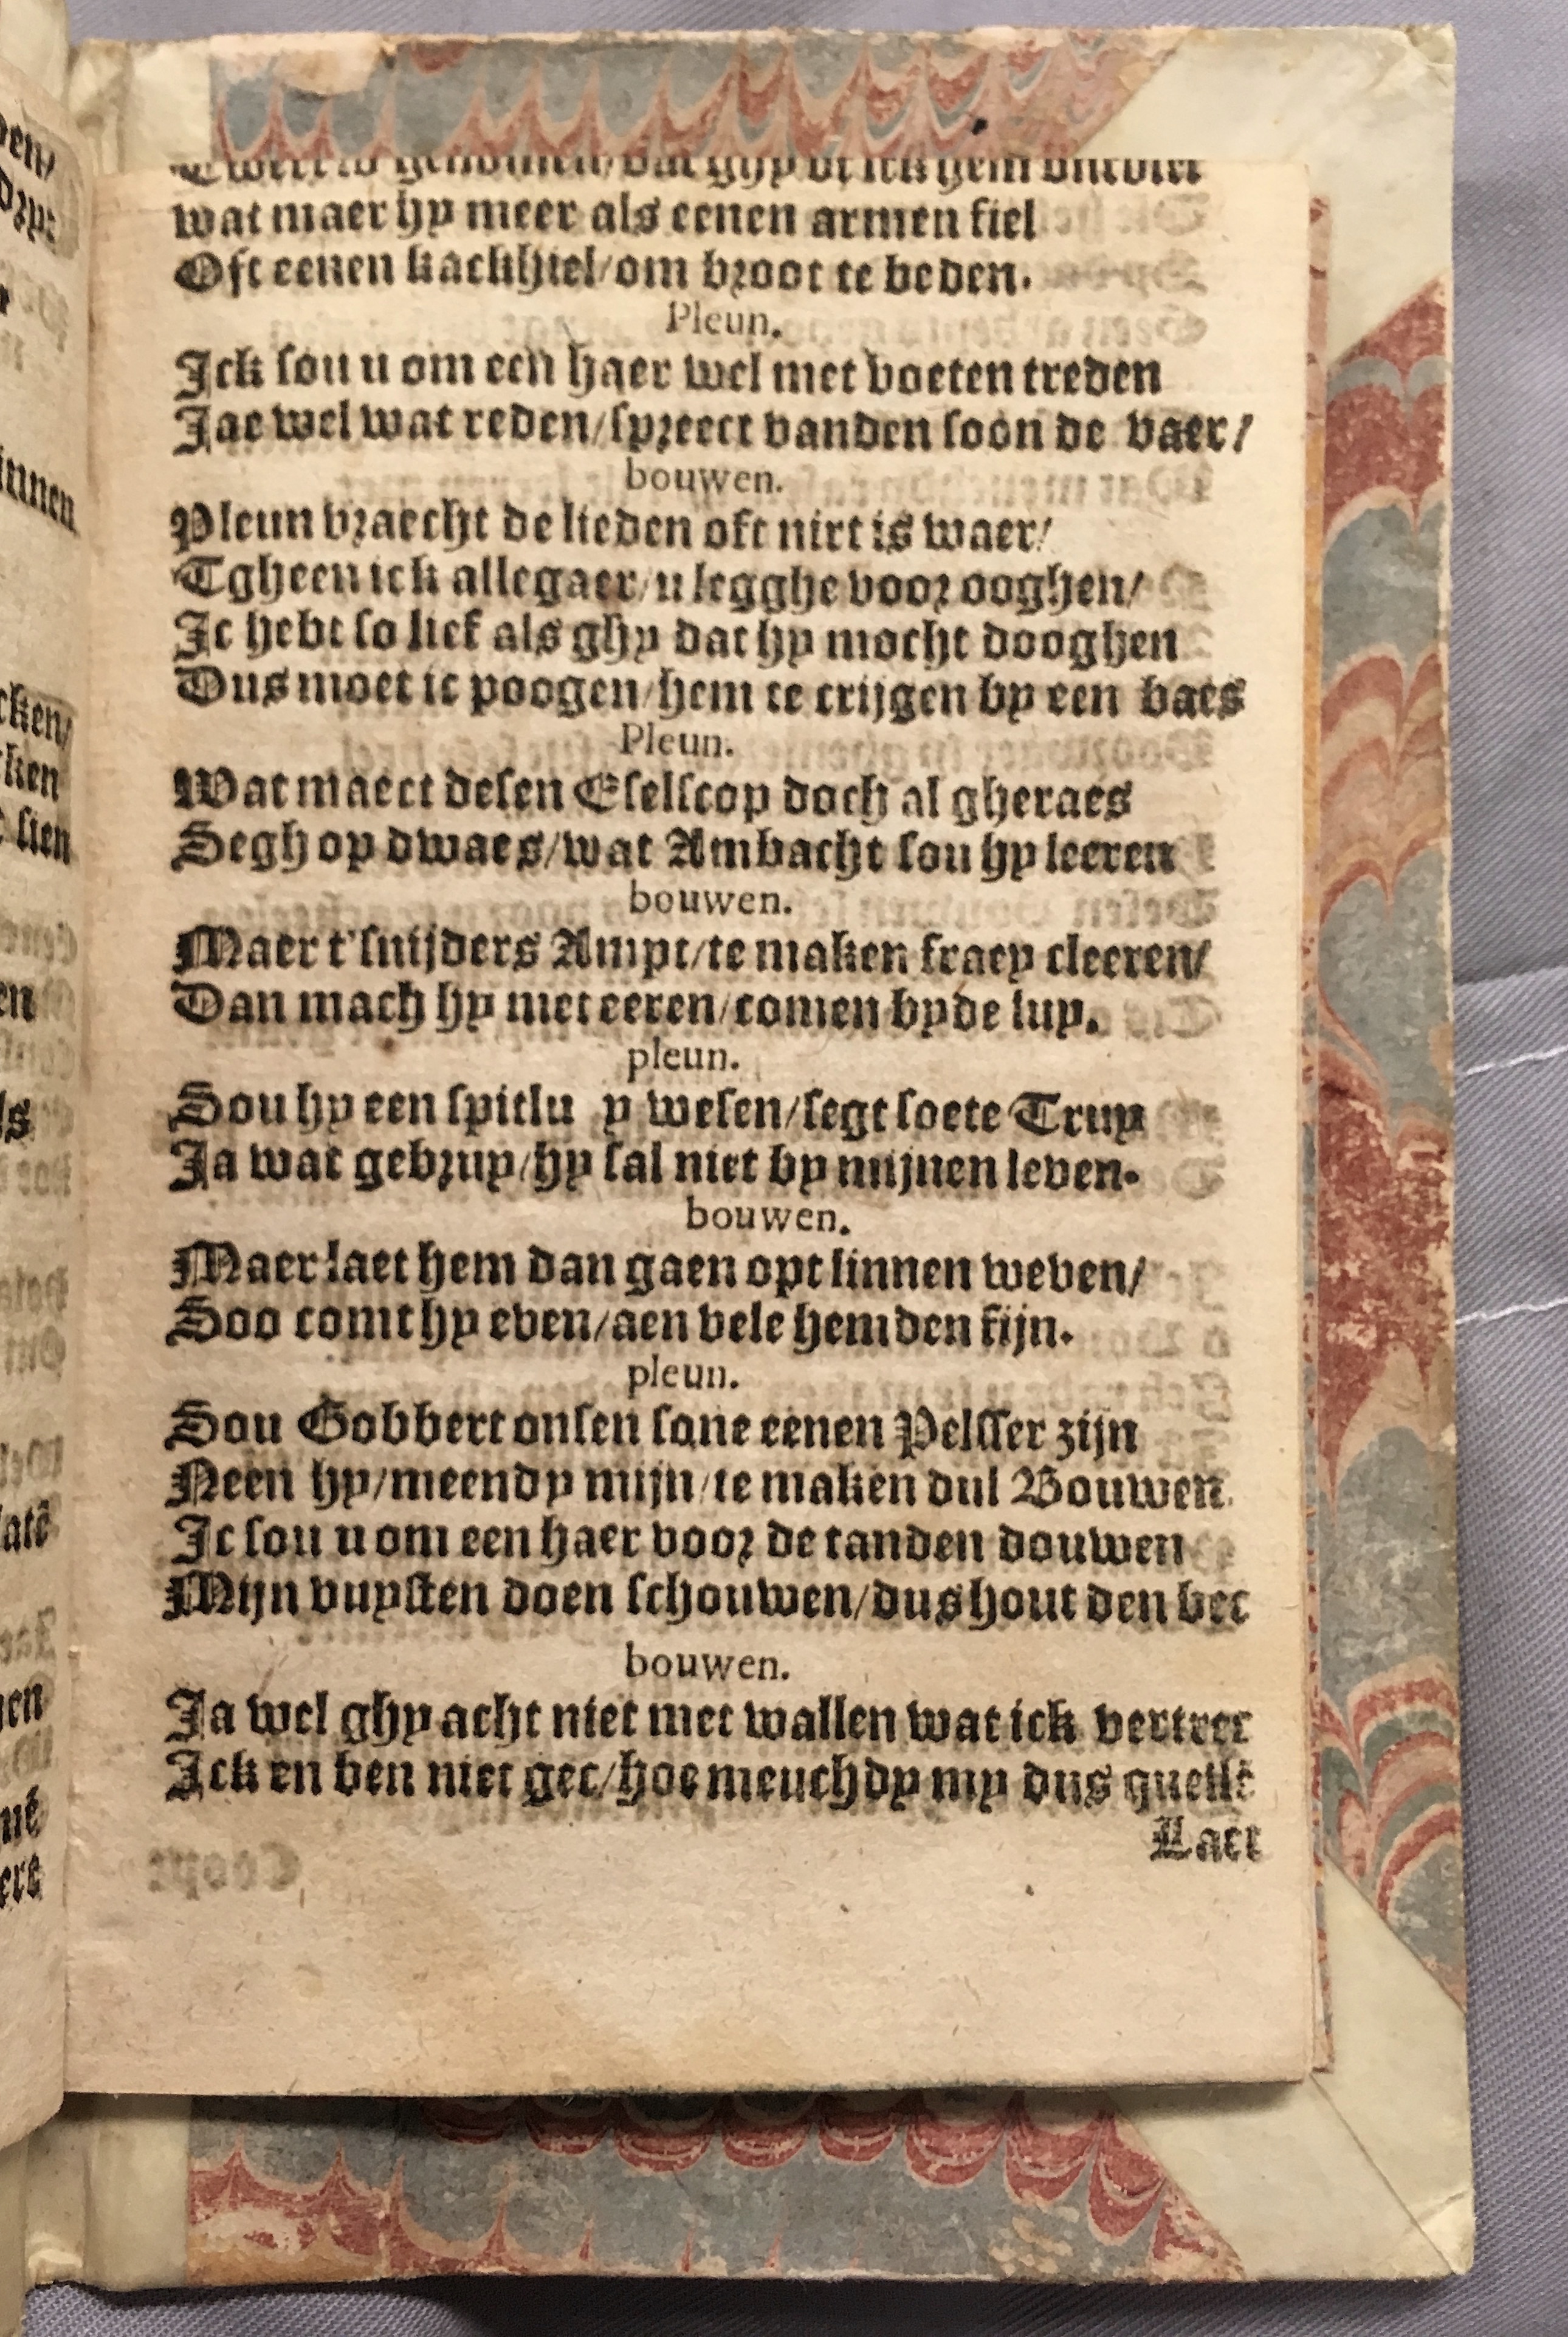 dat ghy
wat maer hy meer als eenen armen fiel
Oft eenen kackhiel/om broot te beden.
Pleun.
Ick sou u om een haer wel met voeten treden
Jae wel wat reden/spreect vanden soon de vaer/
bouwen.
Pleun vraecht de lieden oft niet is waer/
Tgheen ick allegaer/u legghe voor ooghen/
Ic hebt so lief als ghy dat hy mocht dooghen
Dus moet ic poogen/hem te crijgen by een baes
Pleun.
Wat maect desen Eselscop doch al gheraes
Segh op dwaes/wat Ambacht sou hy leeren
bouwen.
Maer t'snijders Ampt/te maken fraey cleeren/
Dan mach hy met eeren/comen byde luy.
pleun.
Sou hy een spitlu y wesen/segt soete Truy
Ja wat gebruy/hy sal niet by mijnen leven.
bouwen.
Maer laet hem dan gaen opt linnen weven/
Soo comt hy even/aen vele hemden fijn.
pleun.
Sou Gobbert onsen sone eenen Pelsser zijn
Neen hy/meendy mijn/te maken dul Bouwen.
Ic sou u om een haer voor de tanden douwen
Mijn vuysten doen schouwen/dus hout den bec
bouwen.
Ja wel ghy acht niet met wallen wat ick vertrec
Ick en ben niet gec/hoe meuchdy my dus quellē
Laet
den/
innen
cken/
ken
sien
en
ls
latē